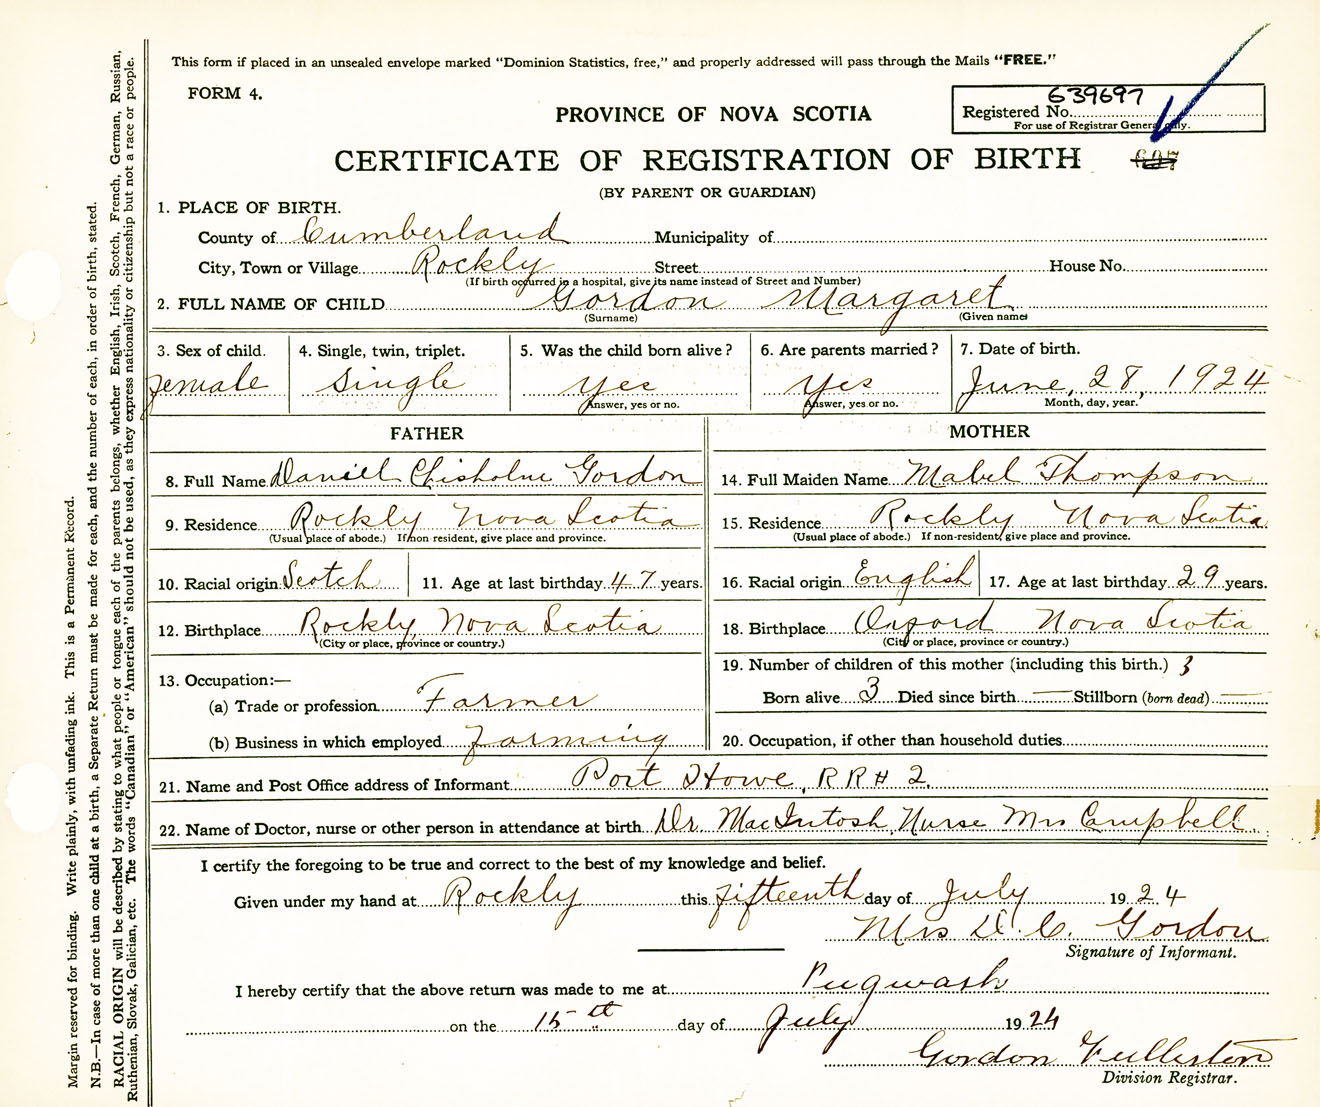 This form if placed in an unsealed envelope marked "Dominion Statistics, free," and properly addressed will pass through the Mails "FREE."
FORM 4.
639697
PROVINCE OF NOVA SCOTIA
Registered No.
For use of Registrar General only.
CERTIFICATE OF REGISTRATION OF BIRTH
(BY PARENT OR GUARDIAN)
1. PLACE OF BIRTH.
County of Cumberland Municipality of
City, Town or Village Rockly Street House No.
(If birth occurred in a hospital, give its name instead of Street and Number)
2. FULL NAME OF CHILD Gordon Margaret
(Surname) (Given name)
3. Sex of child. 4. Single, twin, triplet. 5. Was the child born alive? 6. Are parents married? 7. Date of birth.
female Single Yes Yes June, 28, 1924
Answer, yes or no. Answer, yes or no. Month, day, year.
FATHER MOTHER
8. Full Name Daniel Chisholm Gordon 14. Full Maiden Name Mabel Thompson
9. Residence Rockly Nova Scotia 15. Residence Rockly Nova Scotia
(Usual place of abode.) If non-resident, give place and province. (Usual place of abode.) If non-resident, give place and province.
10. Racial origin Scotch 11. Age at last birthday 47 years. 16. Racial origin English 17. Age at last birthday 29 years.
12. Birthplace Rockly, Nova Scotia 18. Birthplace Oxford Nova Scotia
(City or place, province or country.) (City or place, province or country.)
19. Number of children of this mother (including this birth.) 3
13. Occupation:—
(a) Trade or profession Farmer Born alive 3 Died since birth — Stillborn (born dead) —
(b) Business in which employed farming 20. Occupation, if other than household duties
21. Name and Post Office address of Informant Port Howe, RR# 2.
22. Name of Doctor, nurse or other person in attendance at birth Dr. MacIntosh, Nurse Mrs Campbell.
I certify the foregoing to be true and correct to the best of my knowledge and belief.
Given under my hand at Rockly this fifteenth day of July 1924
Mrs D. C. Gordon
Signature of Informant.
I hereby certify that the above return was made to me at Pugwash
on the 15th day of July 1924
Gordon Fullerton
Division Registrar.
Margin reserved for binding. Write plainly, with unfading ink. This is a Permanent Record.
N.B.—In case of more than one child at a birth, a Separate Return must be made for each, and the number of each, in order of birth, stated.
RACIAL ORIGIN will be described by stating to what people or tongue each of the parents belongs, whether English, Irish, Scotch, French, German, Russian,
Ruthenian, Slovak, Galician, etc. The words "Canadian" or "American" should not be used, as they express nationality or citizenship but not a race or people.